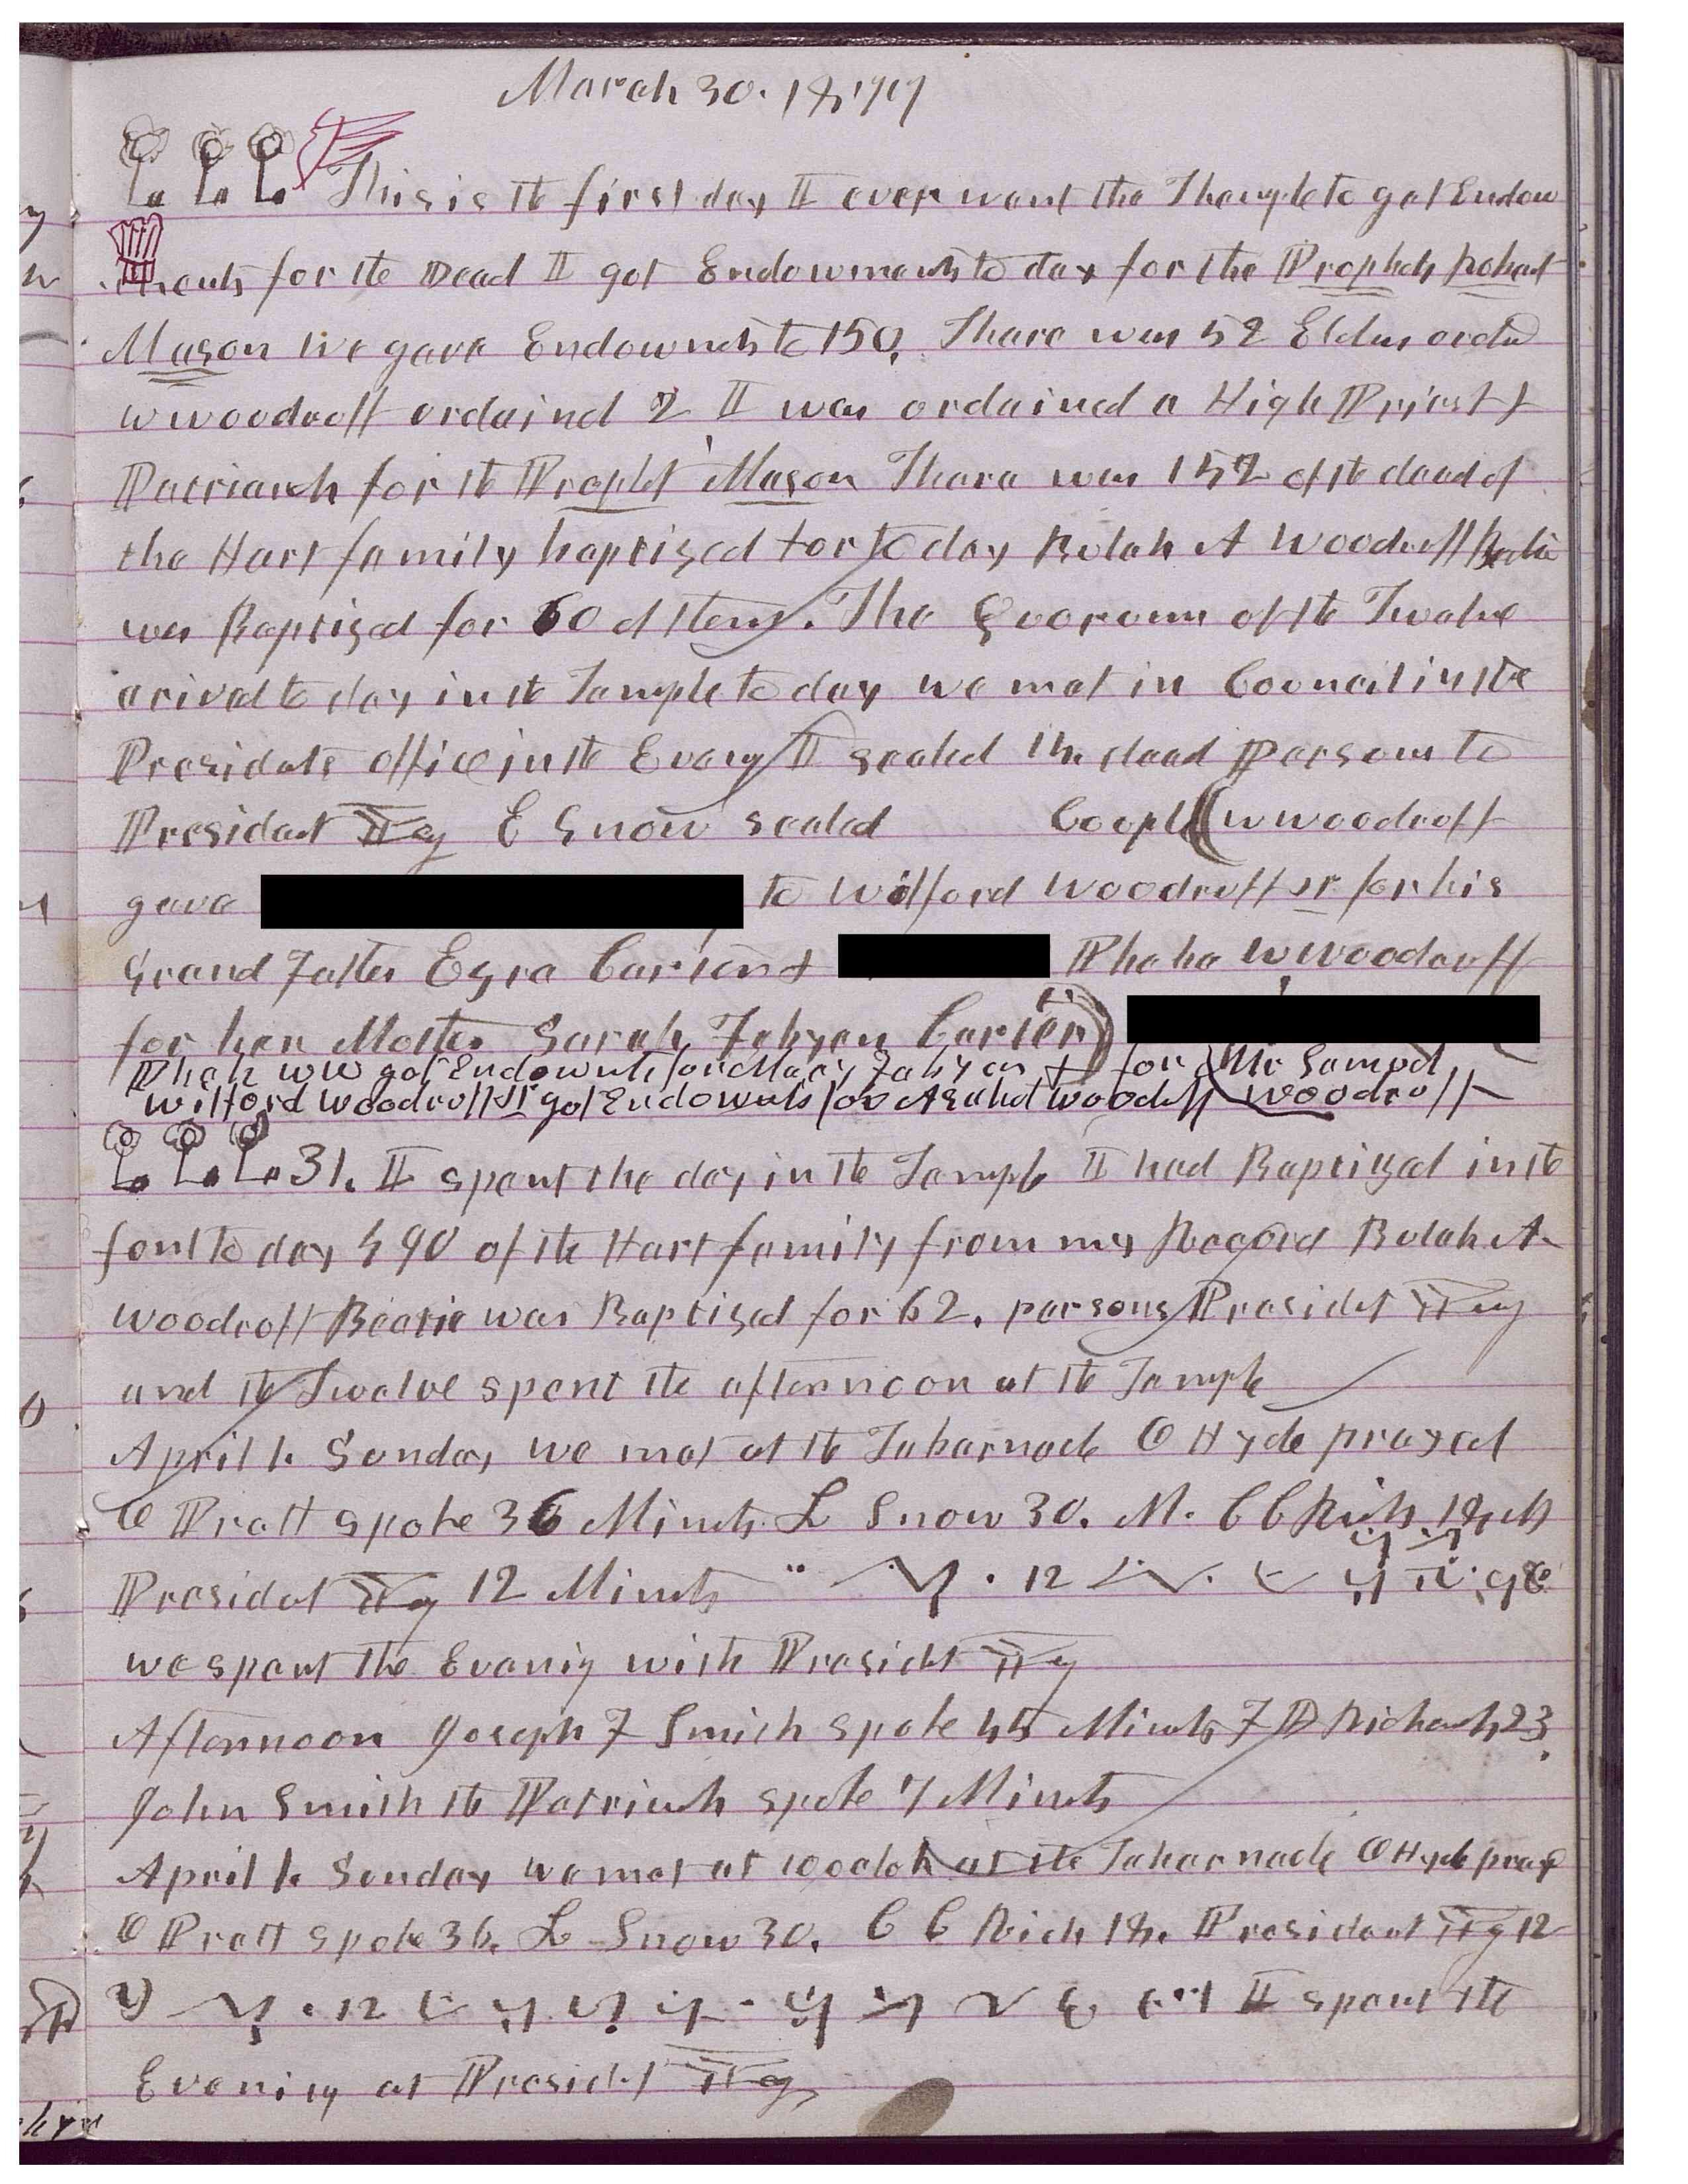 March 30. 1877
This is the first day I ever went the Themple to get Endow
ments for the Dead I got Endowments to day for the Prophets Robert
Mason We gave Endowmets to 150, There was 52 Elders ordd
W Woodruff ordaind 2 I was ordained a High Priest &
Patriarch for the Prophet Mason There was 157 of the dead of
the Hart family baptized for to day Bulah A Woodruff Beatie
was Baptized for 60 of them. The Quorum of the Twelve
arived to day in the Temple to day we met in Council in the
Presidets office in the Eveng I sealed dead Persons to
President Yg E Snow sealed Coupls (W Woodruff
gave to Wilford Woodruff Jr for his
Grand Father Ezra Carter & Phebe W Woodruff
for her Mother Sarah Fabyan Carter)
Pheb WW got Endowmts for Mary Fabyan & for Mr Samuel
Wilford Woodruff Jr got Endowmets for Asahel Woodruff Woodruff
31. I spent the day in the Temple I had Baptized in the
font to day 590 of the Hart family from my Record Bulah A.
Woodruff Beatie was Baptized for 62. persons Presidet Yg
and the Twelve spent the afternoon at the Temple
April 1. Sunday we met at the Tabernacle O Hyde prayed
O Pratt spoke 36 Minuts. L Snow 30. M. C C Rich 18, M
Presidet Yg 12 Minuts 12
we spent the Evenig with Presidet Yg
Afternoon Joseph F Smith spoke 45 Minuts F D Richards 23.
John Smith the Patriach spoke 7 Minuts
April 1. Sunday we met at 10 oclok at the Tabernacle O Hyde pray
O Pratt spoke 36. L Snow 30. C C Rich 18. President Yg 12
12 I spent the
Evening at Presidet Yg